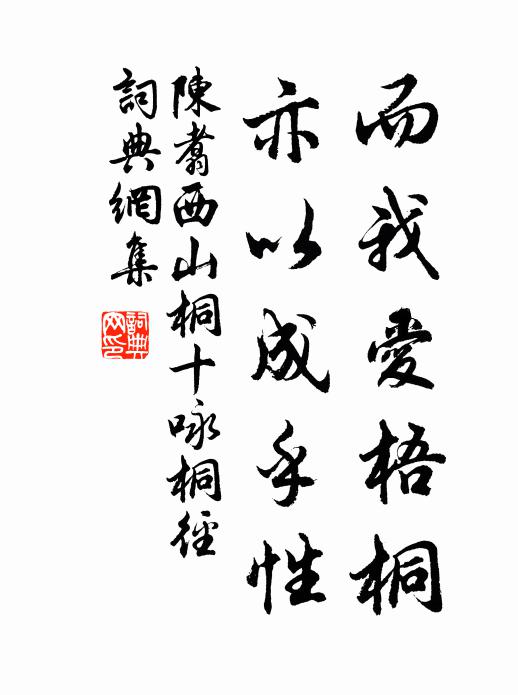 而我愛梧桐
亦以成乎性
陳翥西山桐十咏桐徑
詞典網集
詞典
网印